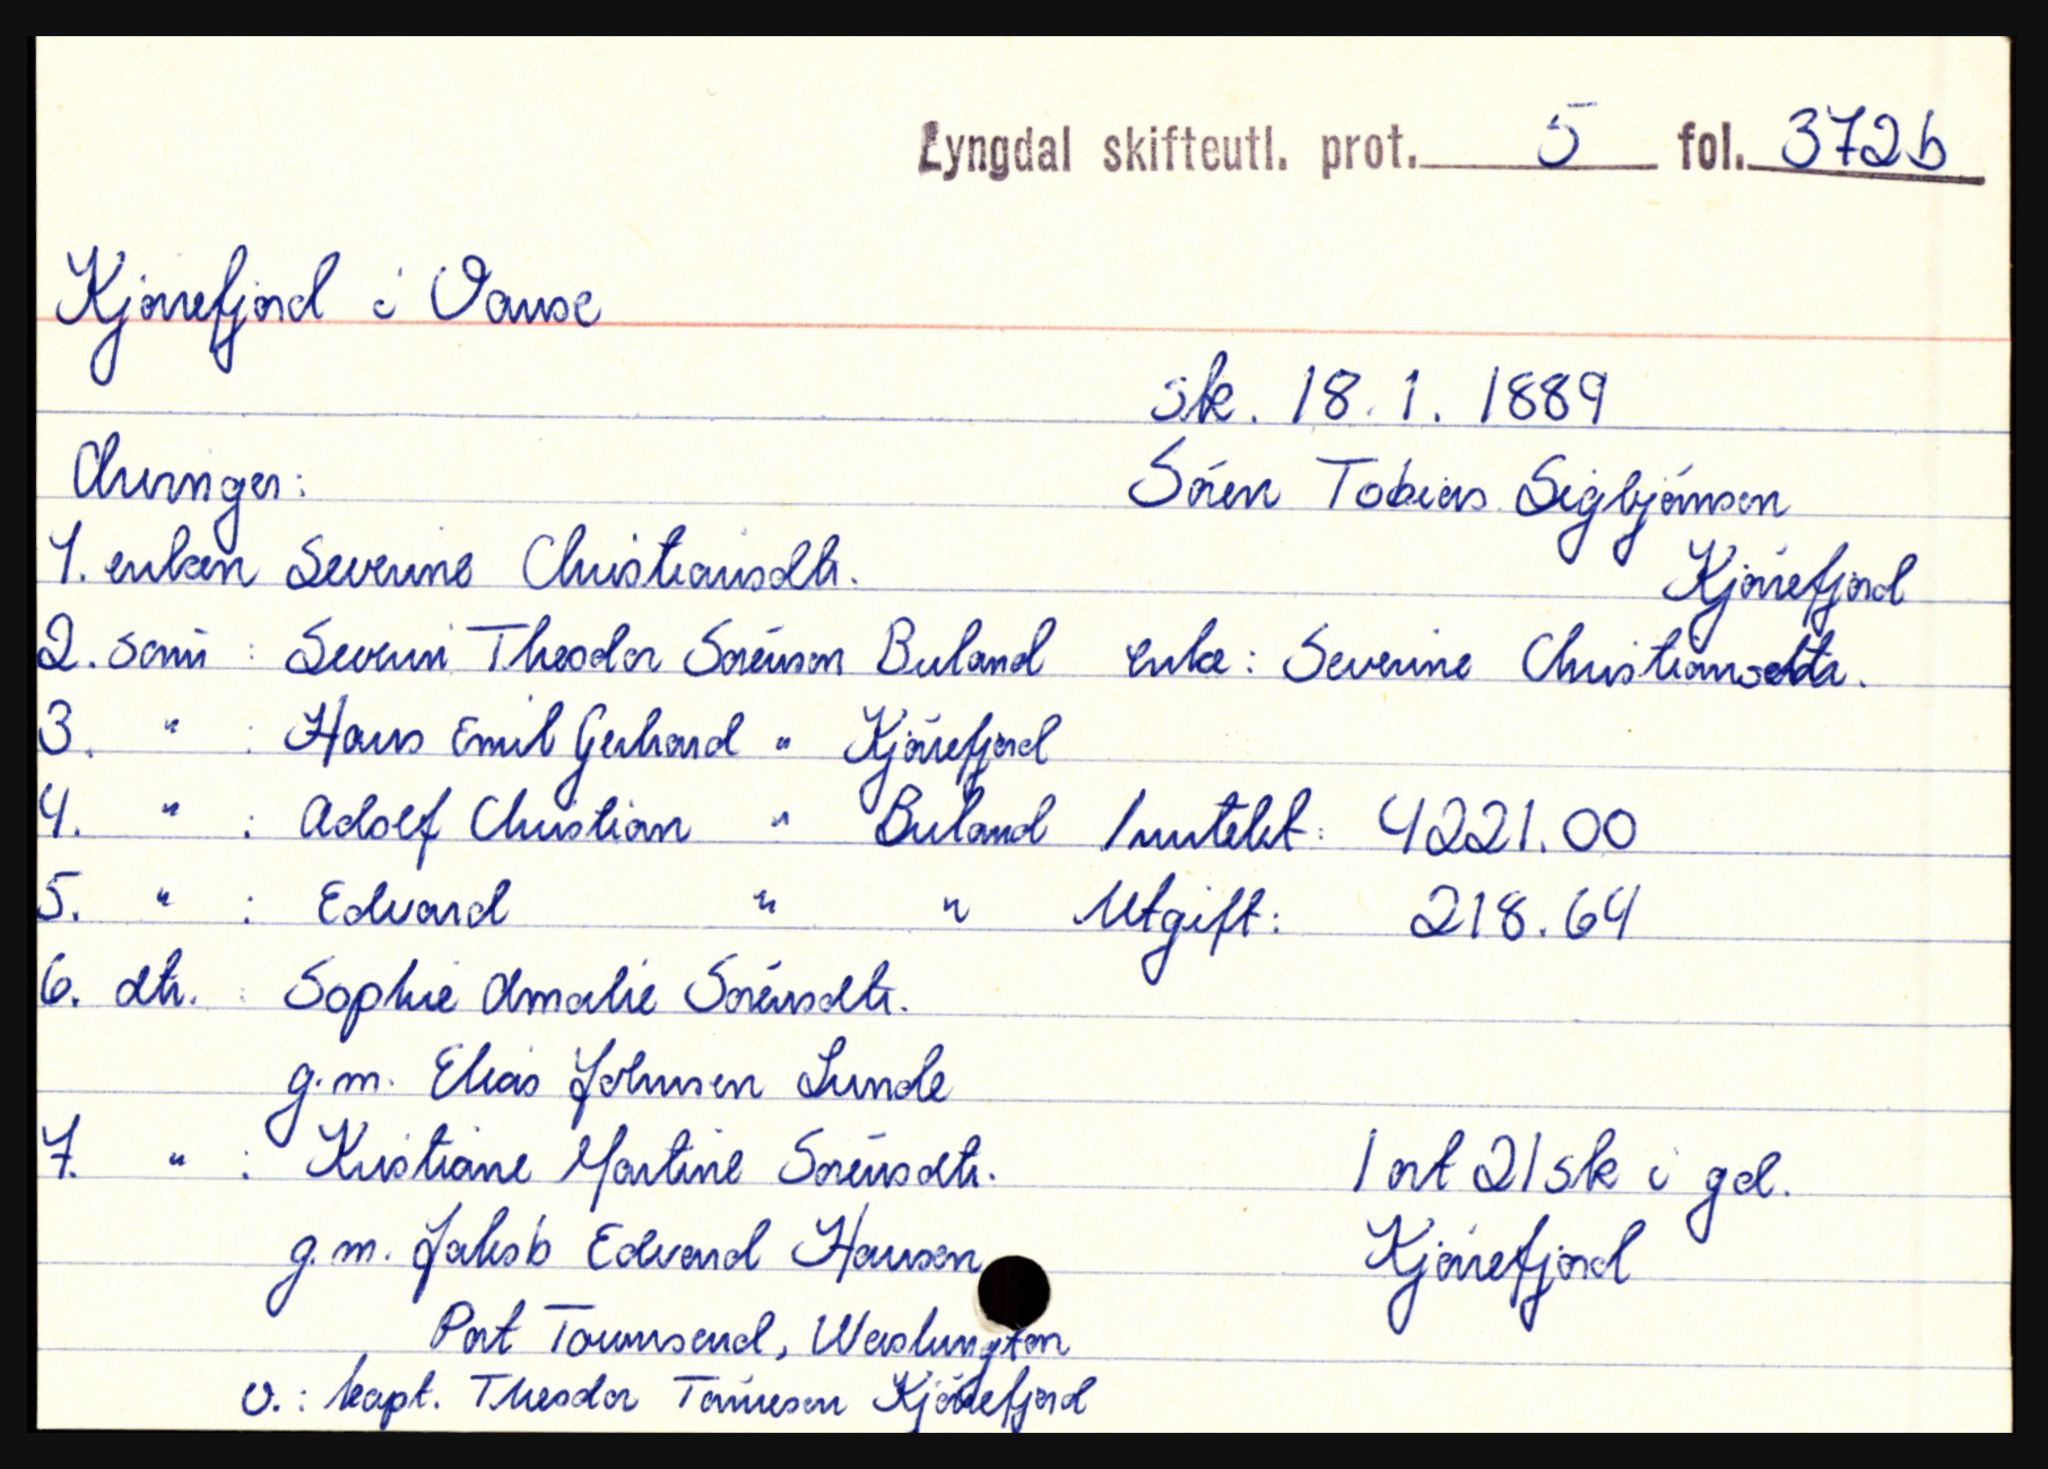 Lyngdal skifteutl. prot. 5 fol. 372b
Kjørrefjord i Vanse
sk. 18.1.1889
Arvinger:
Sören Tobias Sigbjörnsen
Kjørrefjord
1. enken Severine Christiansdtr.
2. sønn : Severin Theodor Sörensen Buland
enke: Severine Christiansdtr.
3. " : Hans Emil Gerhard " Kjørrefjord
4. " : Adolf Christian " Buland
Inntekt: 4221.00
5. " : Edvard " "
Utgift: 218.64
6. dtr. : Sophie Amalie Sörensdtr.
g.m. Elias Johnsen Lunde
7. " : Kristiane Martine Sörensdtr.
1 ort 21 sk i gd.
g.m. Jakob Edvard Hansen
Kjørrefjord
Port Townsend, Washington
v.: kapt. Theodor Tønnesen Kjørrefjord